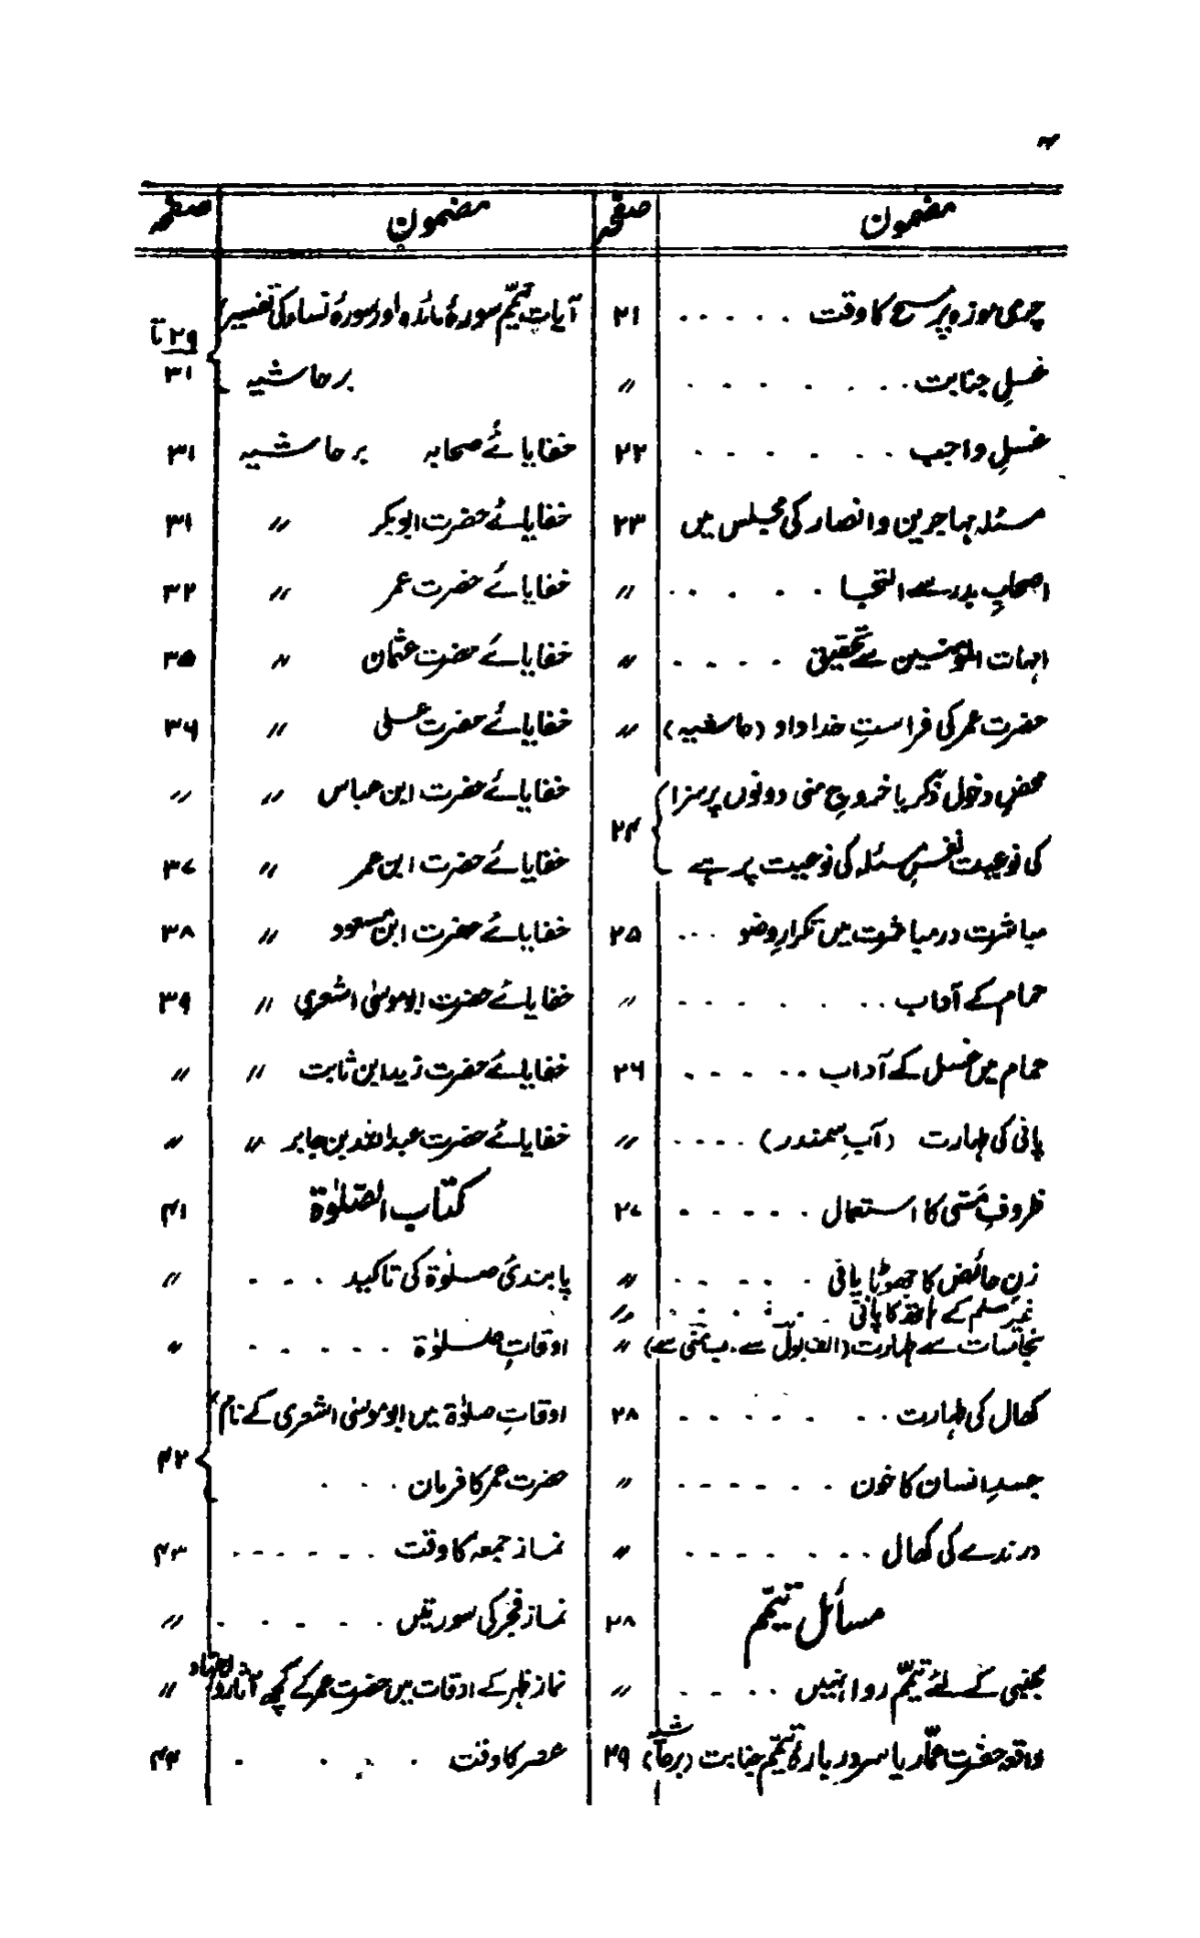 ۴
مضمون صفحہ
چرمی موزہ پر مسح کا وقت ..... ۲۱
غسلِ جنابت ....... 〃
غسلِ واجب ...... ۲۲
مسئلہ مہاجرین و انصار کی مجلس میں ۲۳
اصحابِ بدر سے التجا ..... 〃
امہات المؤمنین سے تحقیق .... 〃
حضرت عمر کی فراستِ خداداد (حاشیہ) 〃
محض دخول ذکر یا خروجِ منی دونوں پر سزا
کی نوعیت نفسِ مسئلہ کی نوعیت پر ہے ۲۴
مباشرت در مباشرت میں تکرارِ وضو ... ۲۵
حمام کے آداب ....... 〃
حمام میں غسل کے آداب ..... ۲۶
پانی کی طہارت (آبِ سمندر) .... 〃
ظروفِ مسّی کا استعمال ..... ۲۷
زنِ حائض کا جھوٹا پانی ..... 〃
غیر مسلم کے ہاتھ کا پانی ..... 〃
نجاسات سے طہارت (الف بول سے، ب منی سے) 〃
کھال کی طہارت ...... ۲۸
جسدِ انسان کا خون ...... 〃
درندے کی کھال ....... 〃
مسائل تیمّم ۲۸
جنبی کے لئے تیمّم روا نہیں .... 〃
واقعہ حضرت عمّار یاسر دربارۂ تیمّم جنابت (برحاشیہ) ۲۹
مضمون صفحہ
آیات تیمّم سورۂ مائدہ اور سورۂ نساء کی تفسیر ۲۹ تا
بر حاشیہ ۳۱
خفایائے صحابہ بر حاشیہ ۳۱
خفایائے حضرت ابوبکر 〃 ۳۱
خفایائے حضرت عمر 〃 ۳۲
خفایائے حضرت عثمان 〃 ۳۵
خفایائے حضرت علی 〃 ۳۶
خفایائے حضرت ابن عباس 〃 〃
خفایائے حضرت ابن عمر 〃 ۳۷
خفایائے حضرت ابن مسعود 〃 ۳۸
خفایائے حضرت ابو موسٰی اشعری 〃 ۳۹
خفایائے حضرت زید ابن ثابت 〃 〃
خفایائے حضرت عبداللہ بن جابر 〃 〃
کتاب الصّلوٰۃ ۴۱
پابندئ صلوٰۃ کی تاکید ... 〃
اوقاتِ صلوٰۃ ..... 〃
اوقاتِ صلوٰۃ میں ابو موسٰی اشعری کے نام
حضرت عمر کا فرمان ... ۴۲
نماز جمعہ کا وقت ...... ۴۳
نماز فجر کی سورتیں ..... 〃
نماز ظہر کے اوقات میں حضرت عمر کے کچھ ۲ آثار و اجتہاد 〃
عصر کا وقت .... ۴۴